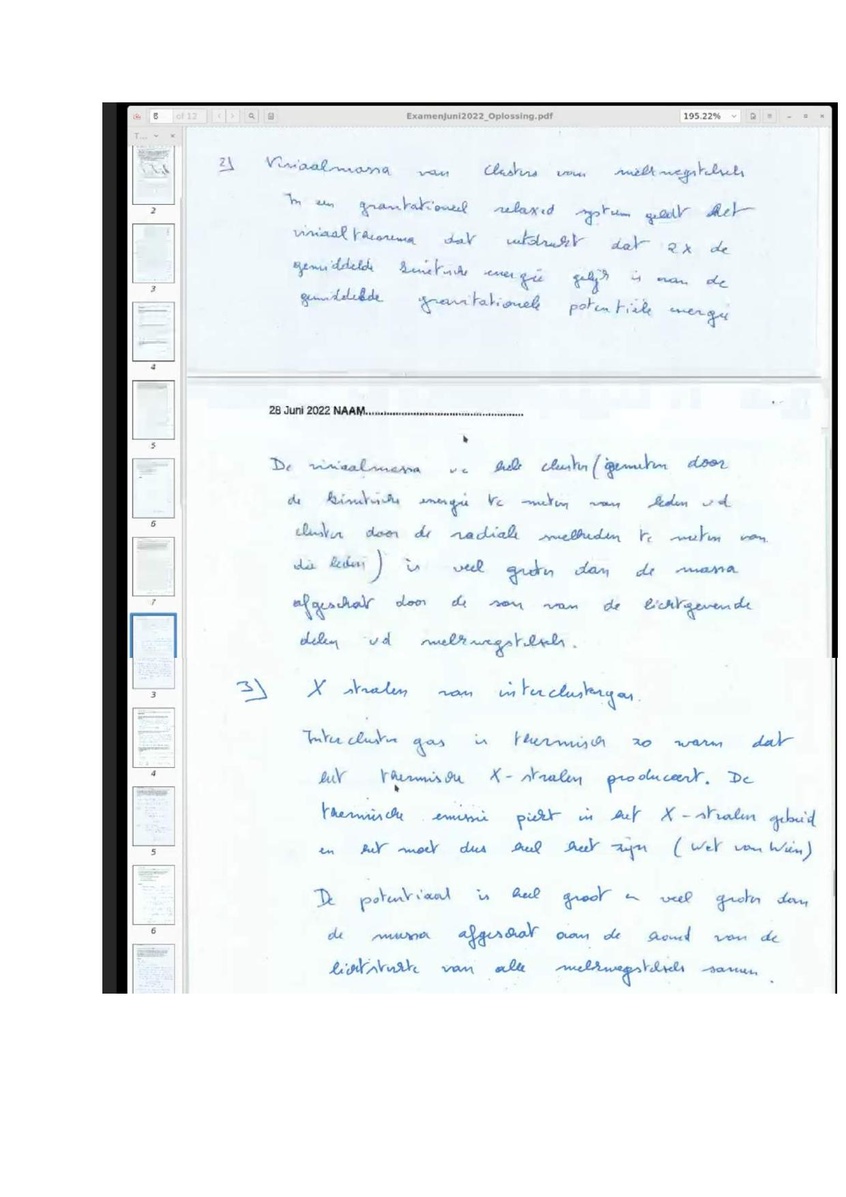 6 of 12
ExamenJuni2022_Oplossing.pdf
195.22%
T...
2
3
4
5
6
7
3
4
5
6
2) Viriaalmassa van clusters van melkwegstelsels
In een gravitationeel relaxed systeem geldt het
viriaaltheorema dat uitdrukt dat 2x de
gemiddelde kinetische energie gelijk is aan de
gemiddelde gravitationele potentiële energie
28 Juni 2022 NAAM..................................................
De viriaalmassa vc hele cluster (gemeten door
de kinetische energie te meten van leden vd
cluster door de radiale snelheden te meten van
die leden) is veel groter dan de massa
afgeschat door de som van de lichtgevende
delen vd melkwegstelsels.
3) X stralen van interclustergas.
Intercluster gas is thermisch zo warm dat
het thermische X-stralen produceert. De
thermische emissie piekt in het X-stralen gebied
en het moet dus heel heet zijn (Wet van Wien)
De potentiaal is heel groot en veel groter dan
de massa afgeschat aan de hand van de
lichtsterkte van alle melkwegstelsels samen.